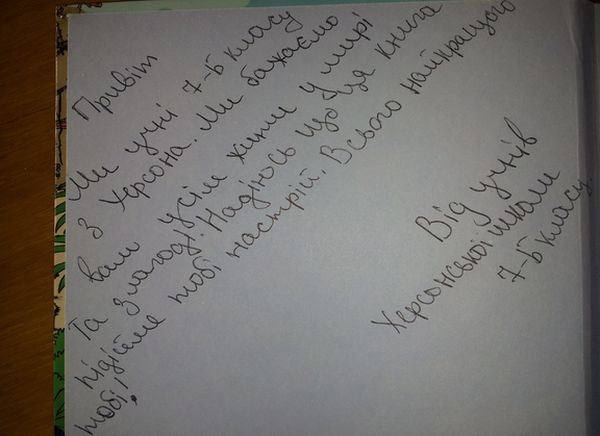 Привіт
Ми учні 7-Б класу
З Херсона. Ми бажаємо
вам усім жити у мирі
Та злагоді. Надіюсь що ця книга
підійме тобі настрій. Всього найкращого
тобі,!
Від учнів
Херсонської школи
7-Б класу.